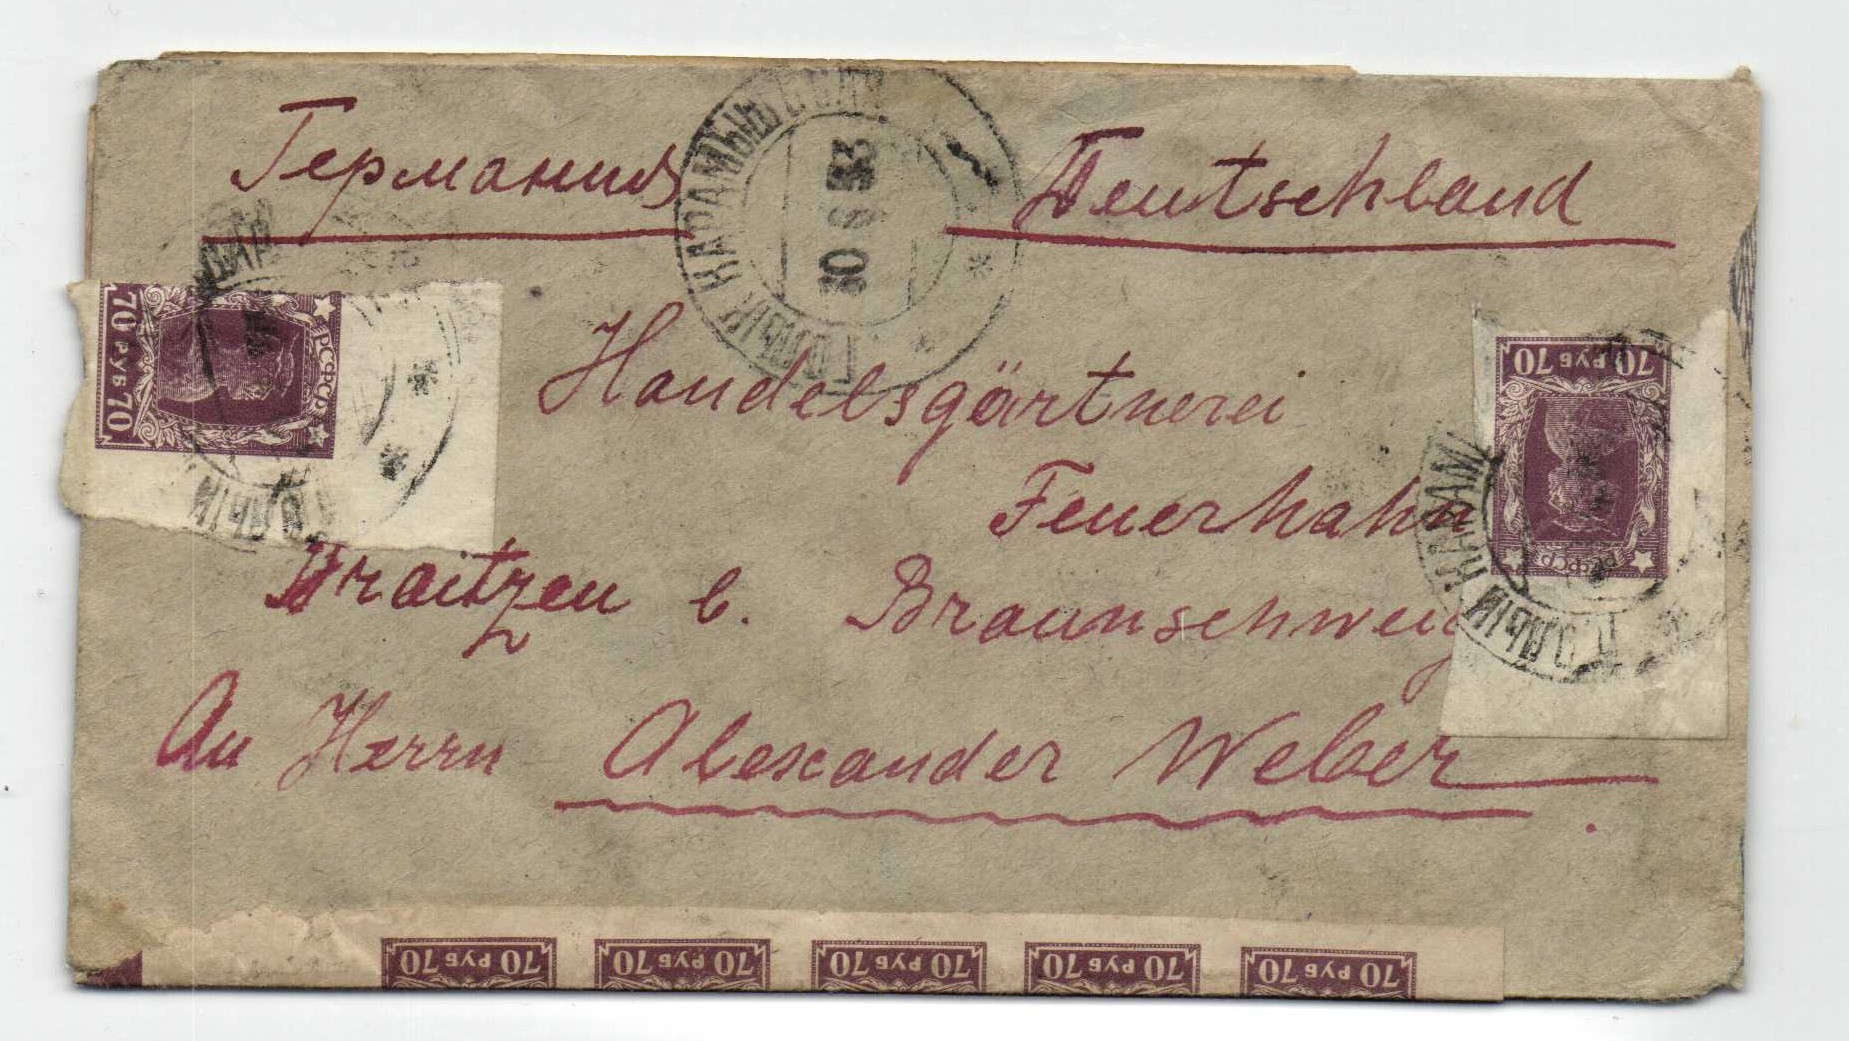 Германия Deutschland
ГОЛЫЙ КАРАМЫШ
30 6 23
70 РУБ 70
РСФСР
Handelsgärtnerei
70 РУБ 70
РСФСР
ГОЛЫЙ КАРАМ
Feuerhahn
Draitzen b. Braunschweig
ГОЛЫЙ
An Herrn Alexander Weber
70 РУБ 70
70 РУБ 70
70 РУБ 70
70 РУБ 70
70 РУБ 70